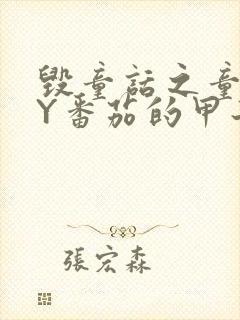 毁童話之童
Y番茄的甲
張宏森